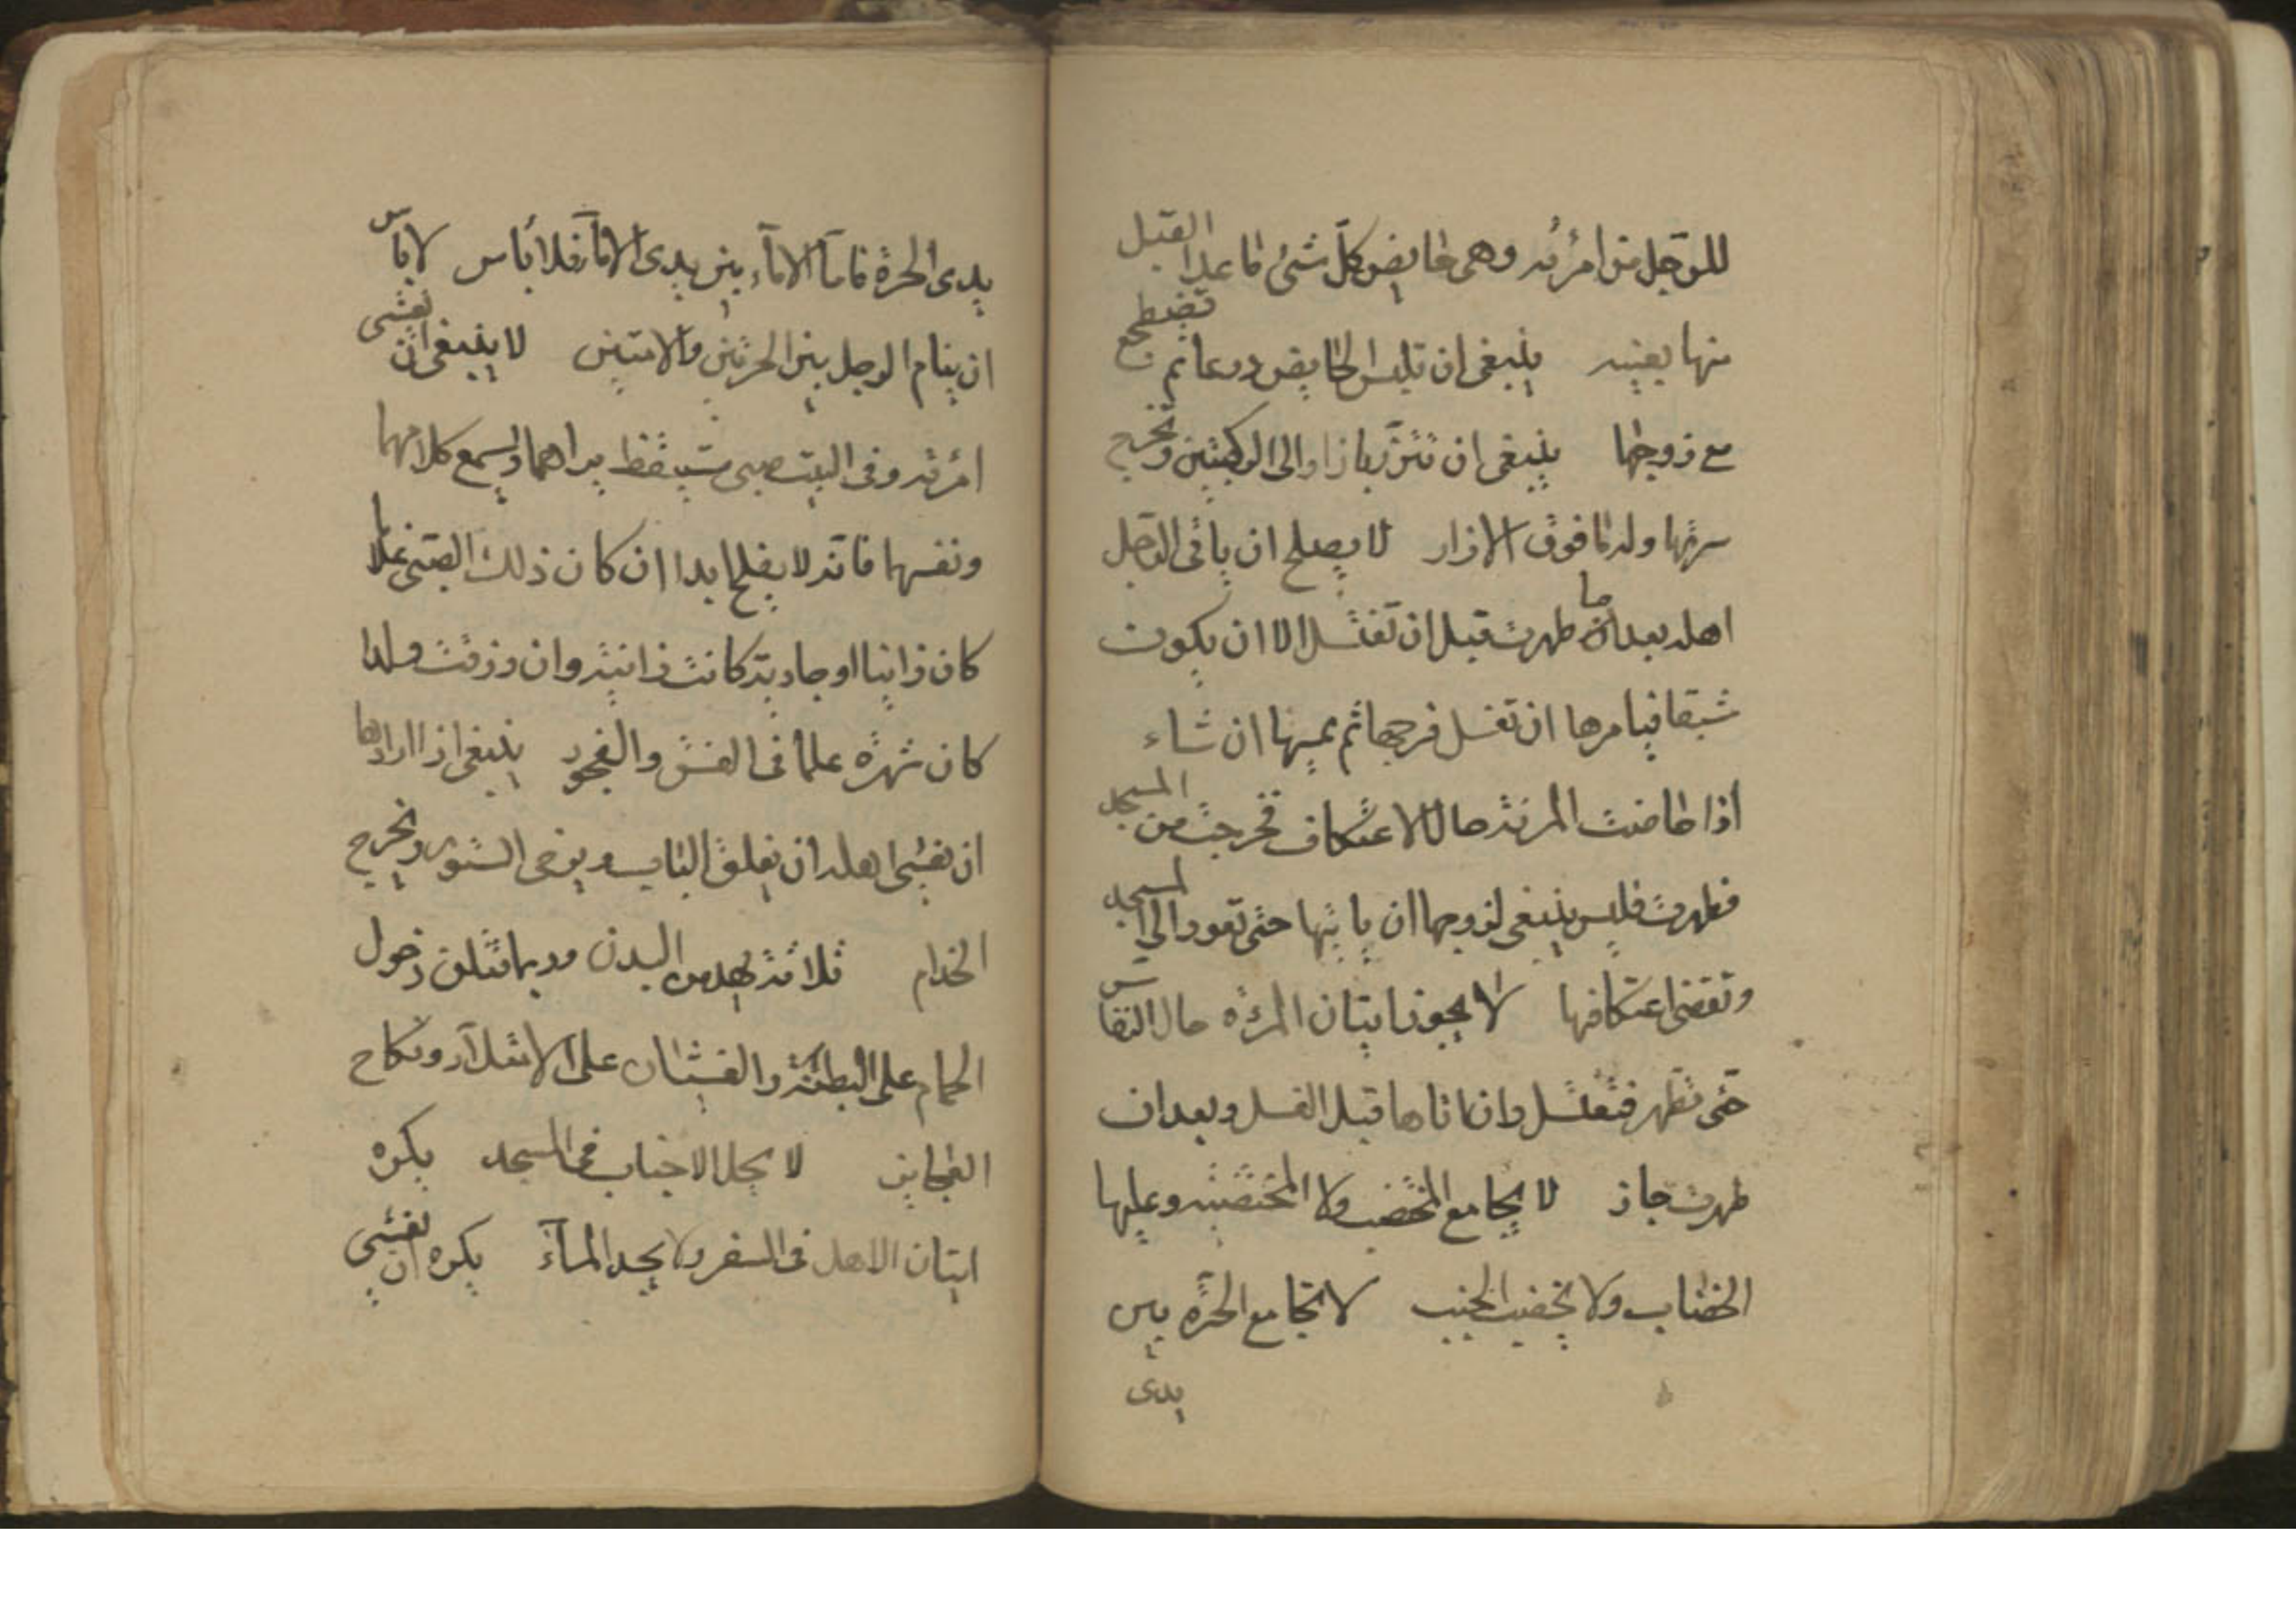 للرجل من امرئته وهي حايض كل شئ ما عدا القبل
منها بعينه ينبغي ان تلبس الحايض درعا ثم تضطجع
مع زوجها ينبغي ان تتزر بازار الى الركبتين وتخرج
سرتها وله ما فوق الازار لا يصلح ان ياتي الرجل
اهله بعد ما طهرت قبل ان تغتسل الا ان يكون
شبقا فيامرها ان تغسل فرجها ثم يمسها ان شاء
اذا حاضت المرئة حال الاعتكاف فخرجت من المسجد
فطهرت فليس ينبغي لزوجها ان ياتيها حتى تعود الى المسجد
وتقضي اعتكافها لا يجوز اتيان المرئة حال النفاس
حتى تطهر فتغتسل وان اتاها قبل الغسل وبعد ان
طهرت جاز لا يجامع المختضب ولا المختضبة وعليها
الخضاب ولا يختضب الجنب لا تجامع الحرة بين
يدي
يدى الحرة فاما الاماء بين يدى الاماء فلا بأس لا بأس
ان ينام الرجل بين الحرتين والامتين لا ينبغي ان يغشى
امرئته وفي البيت صبي مستيقظ يراهما ويسمع كلامهما
ونفسهما فانه لا يفلح ابدا ان كان ذلك الصبي غلاما
كان زانيا او جارية كانت زانية وان رزقت ولدا
كان شهرة علما في الفسق والفجور ينبغي اذا اراد
ان يغشى اهله ان يغلق الباب ويرخى الستور ويخرج
الخدام ثلاثة يهدمن البدن وربما قتلن دخول
الحمام على البطنة والغشيان على الامتلاء ونكاح
العجايز لا يحل الاجناب في المسجد يكره
اتيان الاهل في السفر ولا يجد المآء يكره ان يغشى